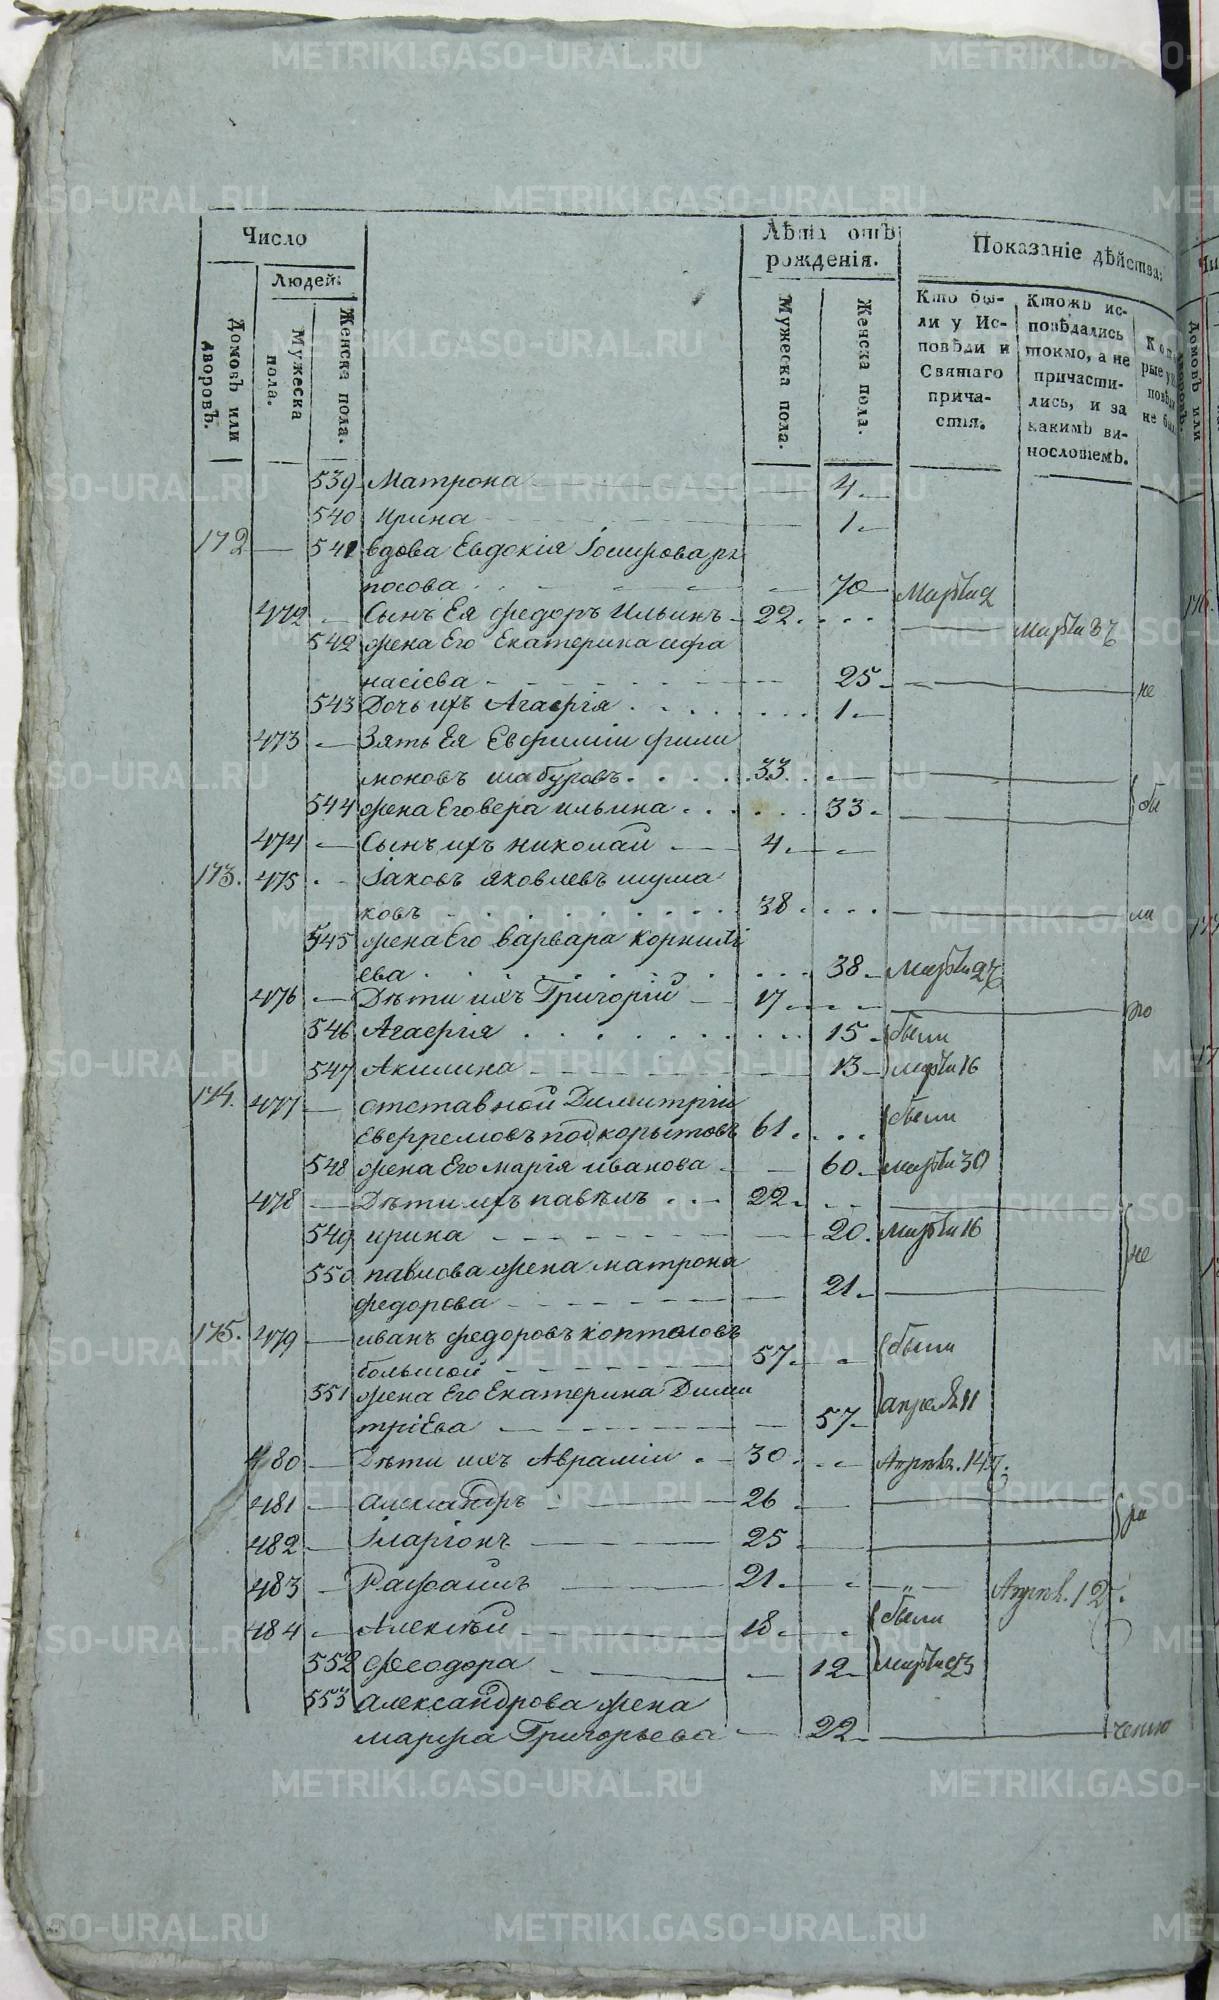 Число
Лѣта отъ рожденія.
Показаніе дѣйства:
Людей:
Домовъ или дворовъ.
Мужеска пола.
Женска пола.
Мужеска пола.
Женска пола.
Кто бы-
ли у Ис-
повѣди и
Святаго
прича-
стія.
Ктожъ ис-
повѣдались
токмо, а не
причасти-
лись, и за
какимъ ви-
нословіемъ.
539 Матрона 4
540 Ирина 1
172 541 вдова Евдокія
посова 70
472 Сынъ Ея федоръ Ильинъ 22
542 жена Его Екатерина афа
насіева 25 не
543 Дочь ихъ Агафія 1
473 Зять Ея Евфимии фили
моновъ шабуровъ 33
544 жена Его вера ильина 33 бы
474 Сынъ ихъ николай 4
173. 475 Іаковъ яковлевъ шума
ковъ 38 ли
545 жена Его варвара Корнилі
ева 38
476 Дѣти ихъ Григорій 17
546 Агафія 15 были
547 Акилина 13 марта 16
174. 477 отставной Димитрій
подкорытовъ 61 были
548 жена Его марія иванова 60 марта 30
478 Дѣти ихъ павелъ 22
549 ирина 20 марта 16 не
550 павлова жена матрона
федорова 21
175. 479 иванъ федоровъ коптеловъ
большой 57 были
551 жена Его Екатерина Дими
тріева 57 апреля 11
480 Дѣти ихъ Аврамій 30
481 александръ 26
482 Іларіонъ 25
483 Рафаилъ 21
484 Алексѣй 18 были
552 Феодора 12 марта 23
553 александрова жена
марфа Григорьева 22
METRIKI.GASO-URAL.RU